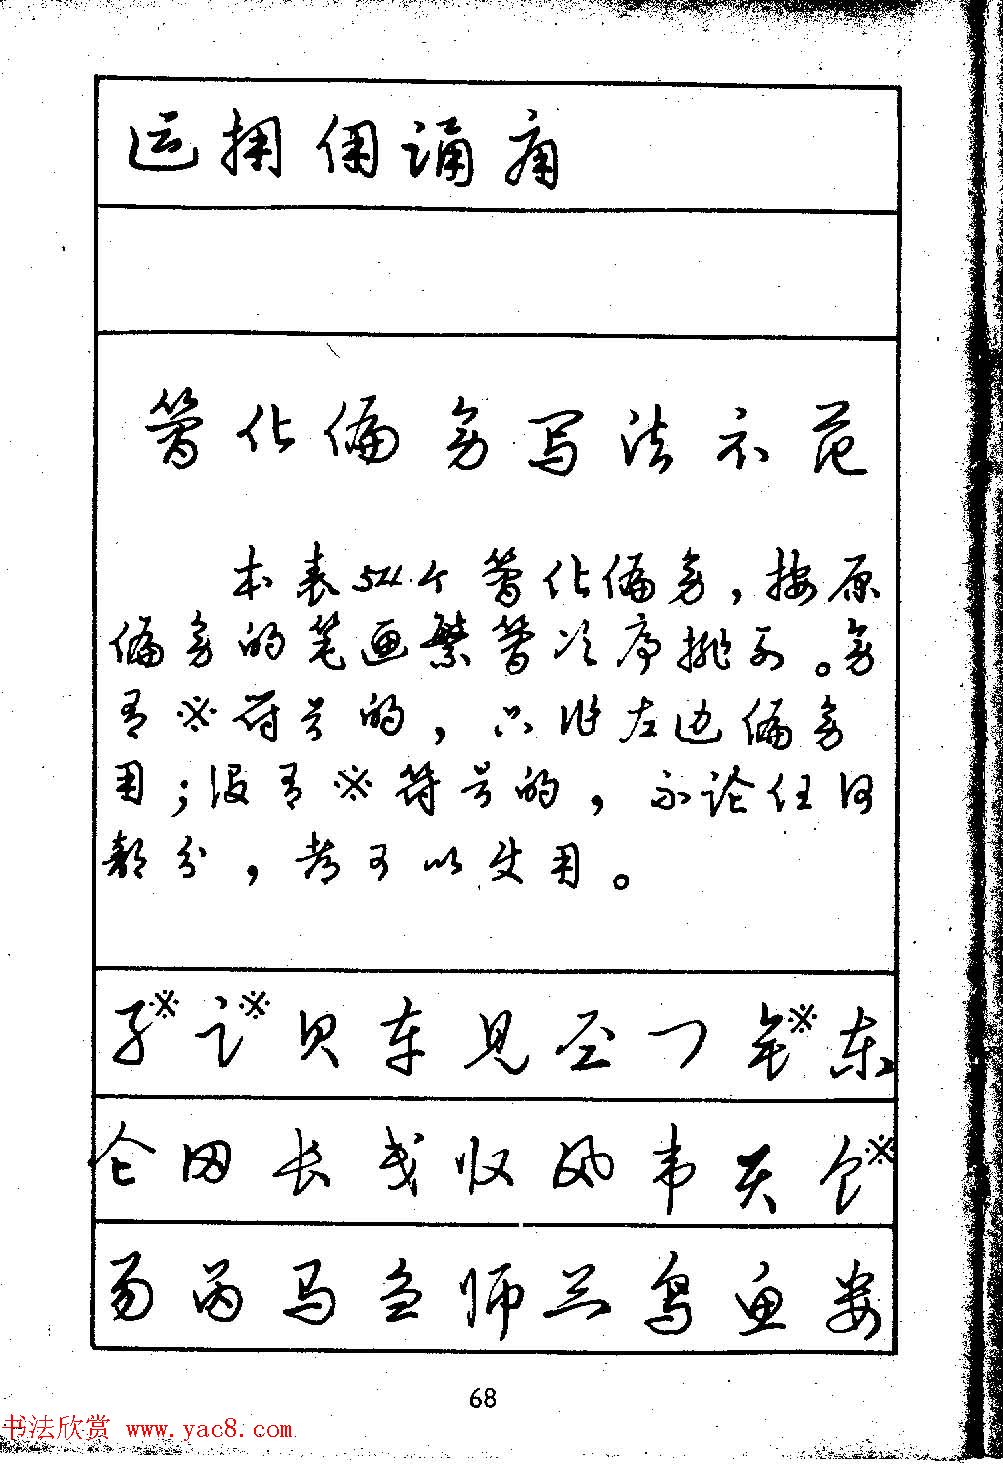 运拥佣诵痛
简化偏旁写法示范
本表54个简化偏旁，按原
偏旁的笔画繁简次序排列。旁
有※符号的，只准左边偏旁
用；没有※符号的，不论任何
部分，都可以使用。
孑※ 讠※ 贝 车 见 乛 钅※ 东
仑 冈 长 戋 收 风 韦 天 饣※
昜 马 刍 师 兰 鸟 鱼 娄
68
书法欣赏 www.yac8.com